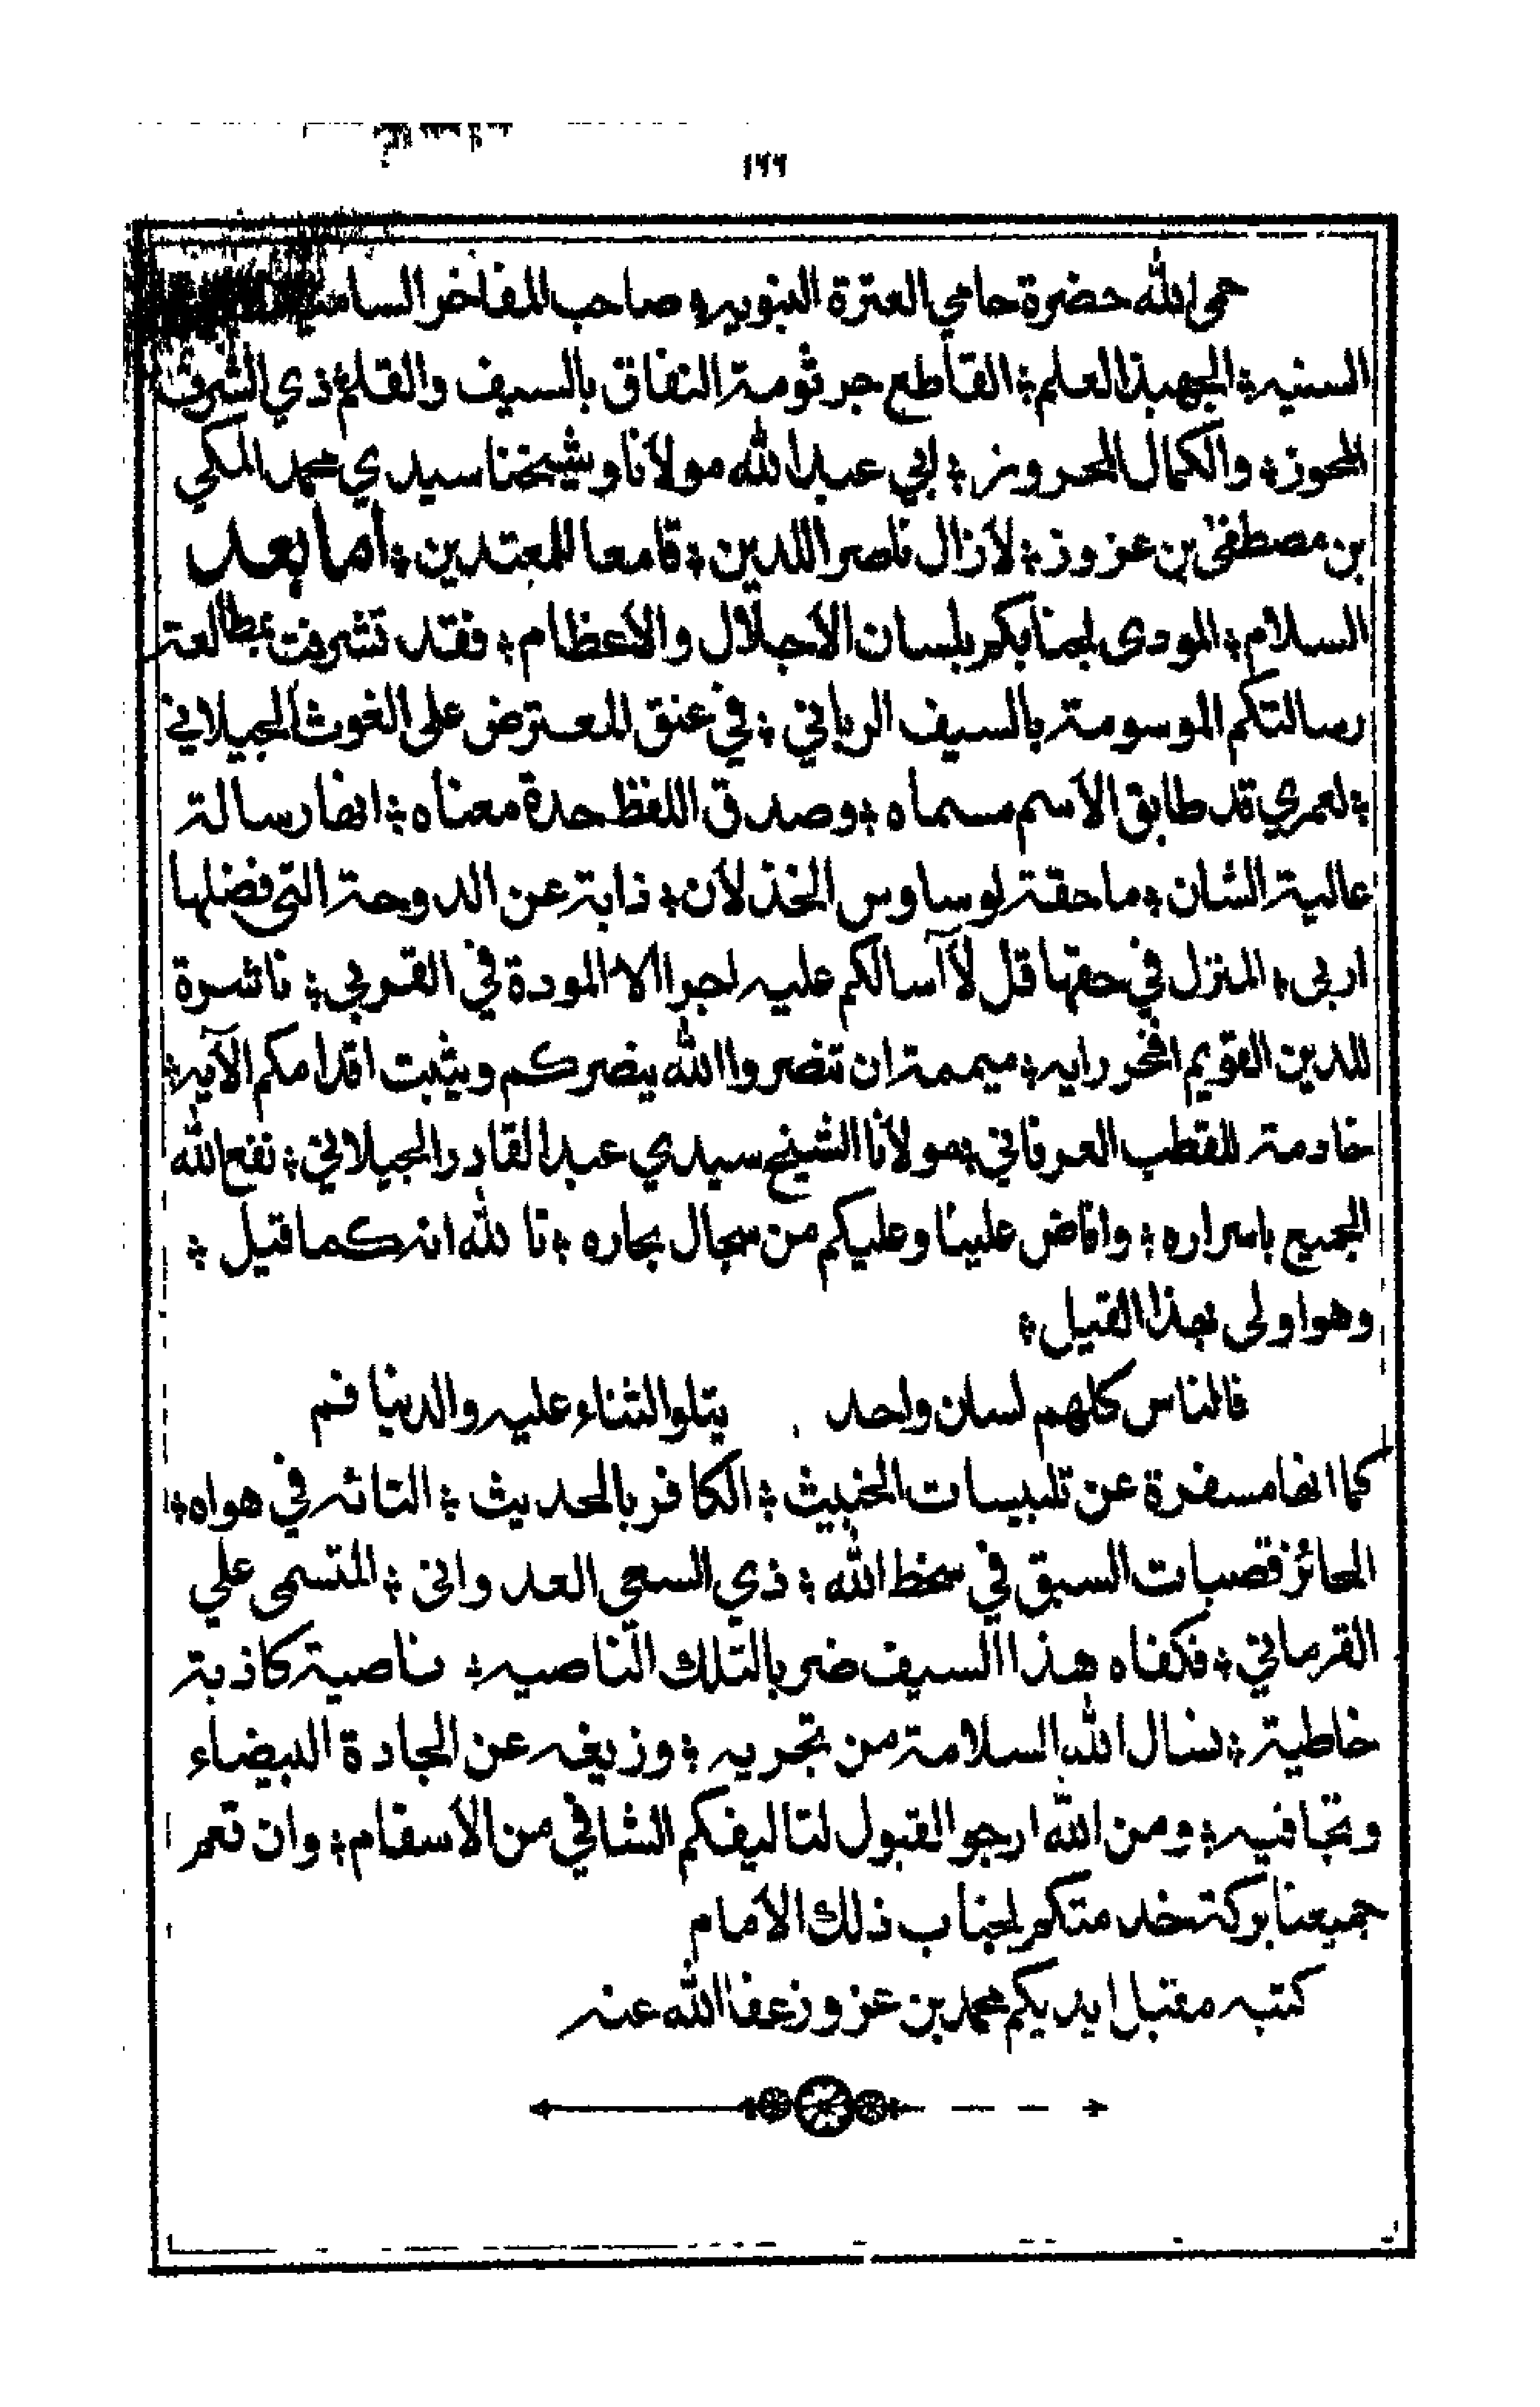 ١٦٦
حمى الله حضرة حامي العترة النبويه؛ صاحب المفاخر
السنيه؛ الجهبذ العلم؛ القاطع جرثومة النفاق بالسيف والقلم؛ ذي الشرف
المحوز؛ والكمال المحروز؛ ابي عبد الله مولانا وشيخنا سيدي محمد المكي
بن مصطفى بن عزوز؛ لازال ناصرا للدين؛ قامعا للمعتدين؛ اما بعد
السلام؛ المودى لجنابكم بلسان الأجلال والأعظام؛ فقد تشرفت بمطالعة
رسالتكم الموسومة بالسيف الرباني؛ في عنق المعترض على الغوث الجيلاني
؛ لعمري قد طابق الاسم مسماه؛ وصدق اللفظ حدة معناه؛ انها رسالة
عالية الشان؛ ماحقة لوساوس الخذلان؛ ذابة عن الدوحة التي فضلها
اربى؛ المنزل في حقها قل لا آسالكم عليه اجرا الا المودة في القربي؛ ناشرة
للدين القويم افخر رايه؛ ميممة ان تنصروا الله ينصركم ويثبت اقدامكم الآيه؛
خادمة للقطب العرفاني؛ مولانا الشيخ سيدي عبد القادر الجيلاني؛ نفع الله
الجميع باسراره؛ وافاض علينا وعليكم من سجال بحاره؛ تا لله انه كما قيل؛
وهو اولى بهذا القيل؛
فالناس كلهم لسان واحد يتلو الثناء عليه والدنيا فم
كما انها مسفرة عن تلبيسات الخبيث؛ الكافر بالحديث؛ التائه في هواه؛
الحائز قصبات السبق في سخط الله؛ ذي السعي العدواني؛ المتسمى علي
القرماني؛ فكفاه هذا السيف ضربا لتلك الناصيه؛ ناصية كاذبة
خاطية؛ نسال الله السلامة من تجريه؛ وزيغه عن الجادة البيضاء
وتجافيه؛ ومن الله ارجو القبول لتاليفكم الشافي من الأسقام؛ وان تعم
جميعنا بركة خدمتكم لجناب ذلك الأمام
كتبه مقبل ايديكم محمد بن عزوز عفا الله عنه